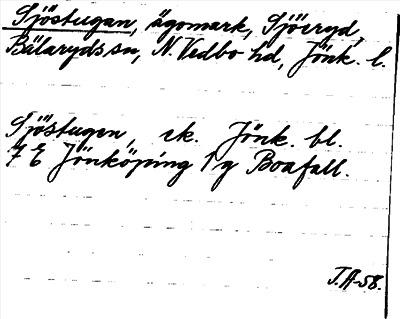 Sjöstugan, ägomark, Sjöeryd,
Bälaryds sn, N. Vedbo hd, Jönk. l.
Sjöstugen, ek. Jönk. bl.
7 E Jönköping 1 g Boafall.
J.A-58.